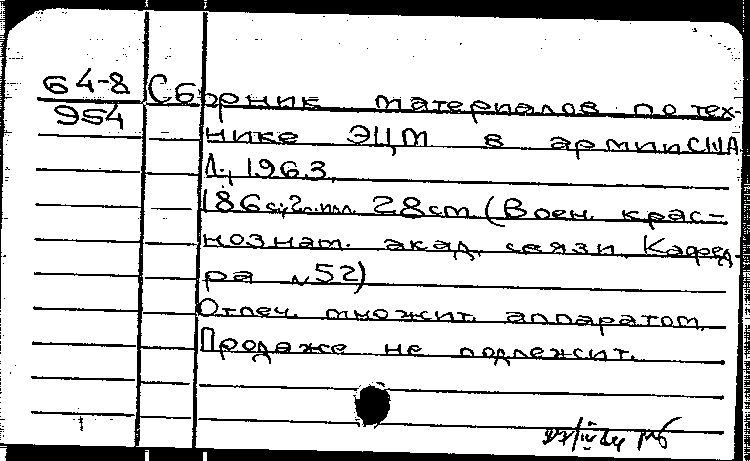 64-8
954
Сборник материалов по тех-
нике ЭЦМ в армии США
Л., 1963.
186 с; 2 л. илл. 28 cm (Воен. крас-
нознам. акад. связи. Кафед-
ра №52)
Отпеч. множит. аппаратом.
Продаже не подлежит.